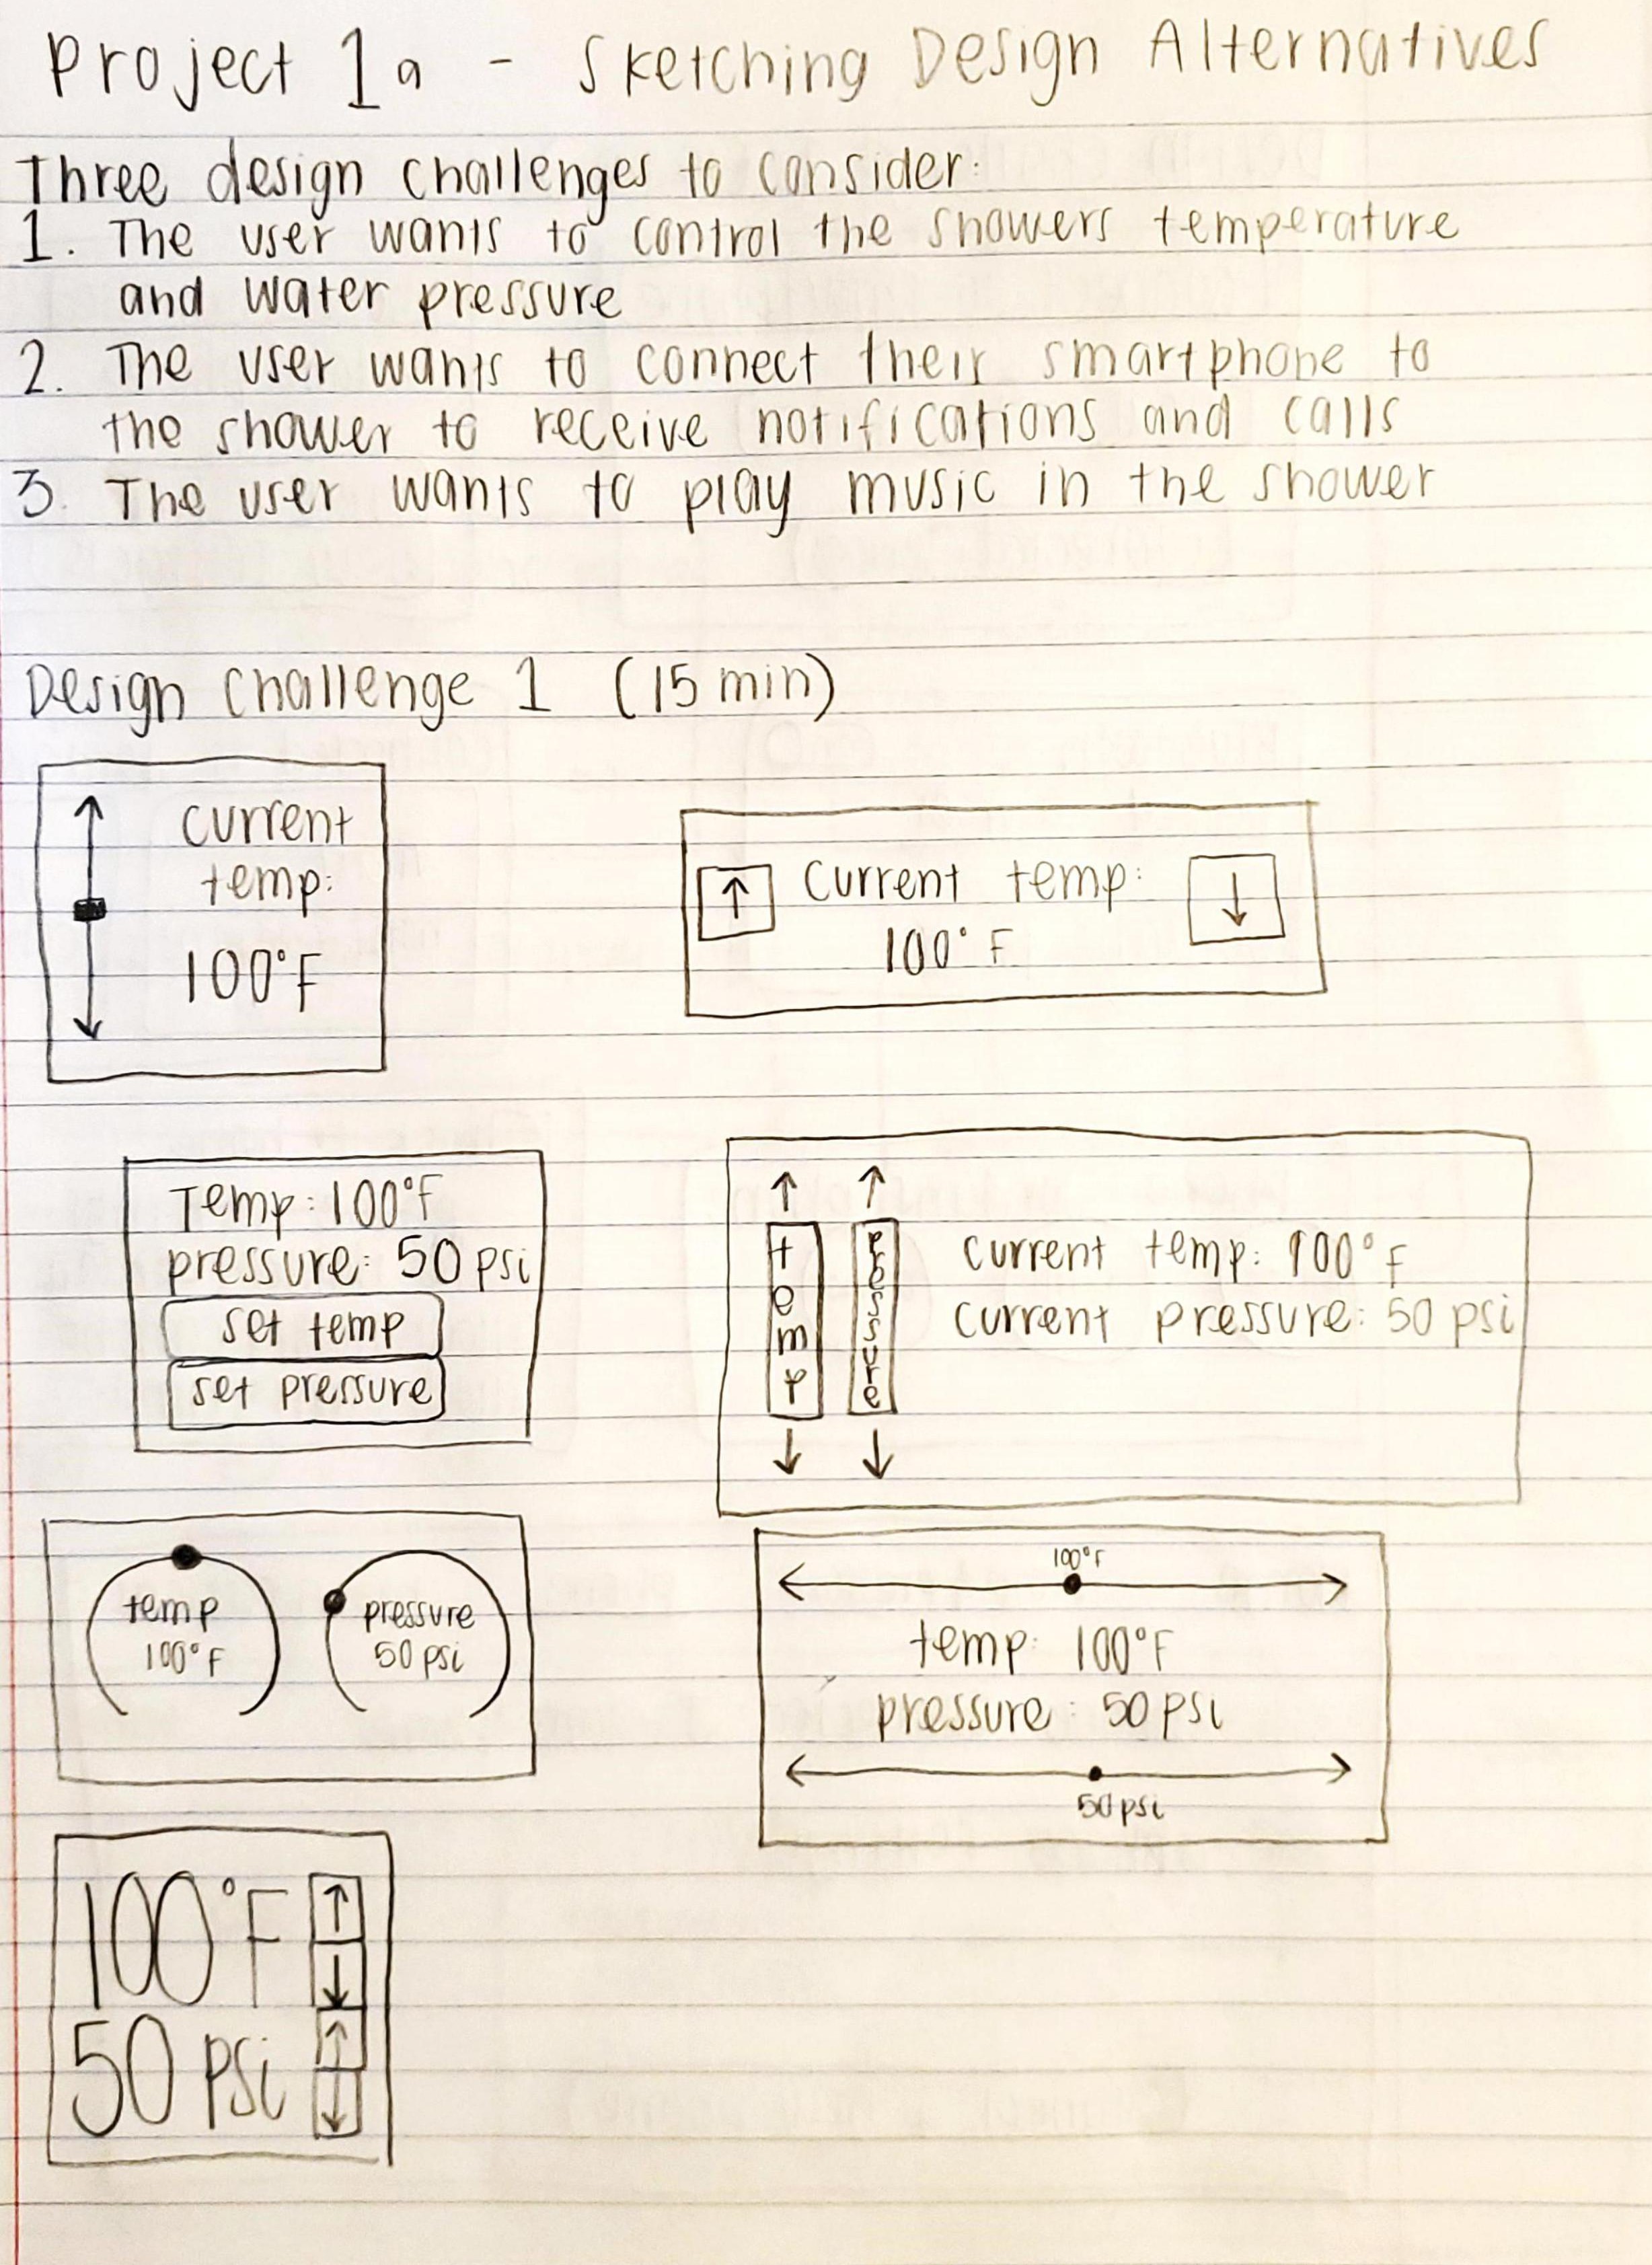 Project 1a - Sketching Design Alternatives
Three design challenges to consider:
1. The user wants to control the showers temperature
and water pressure
2. The user wants to connect their smartphone to
the shower to receive notifications and calls
3. The user wants to play music in the shower
Design Challenge 1 (15 min)
current
temp:
100°F
↑ Current temp: ↓
100°F
Temp: 100°F
pressure: 50 psi
set temp
set pressure
temp
pressure
current temp: 100°F
current pressure: 50 psi
temp
100°F
pressure
50 psi
100°F
temp: 100°F
pressure: 50 psi
50 psi
100°F ↑
↓
50 psi ↑
↓